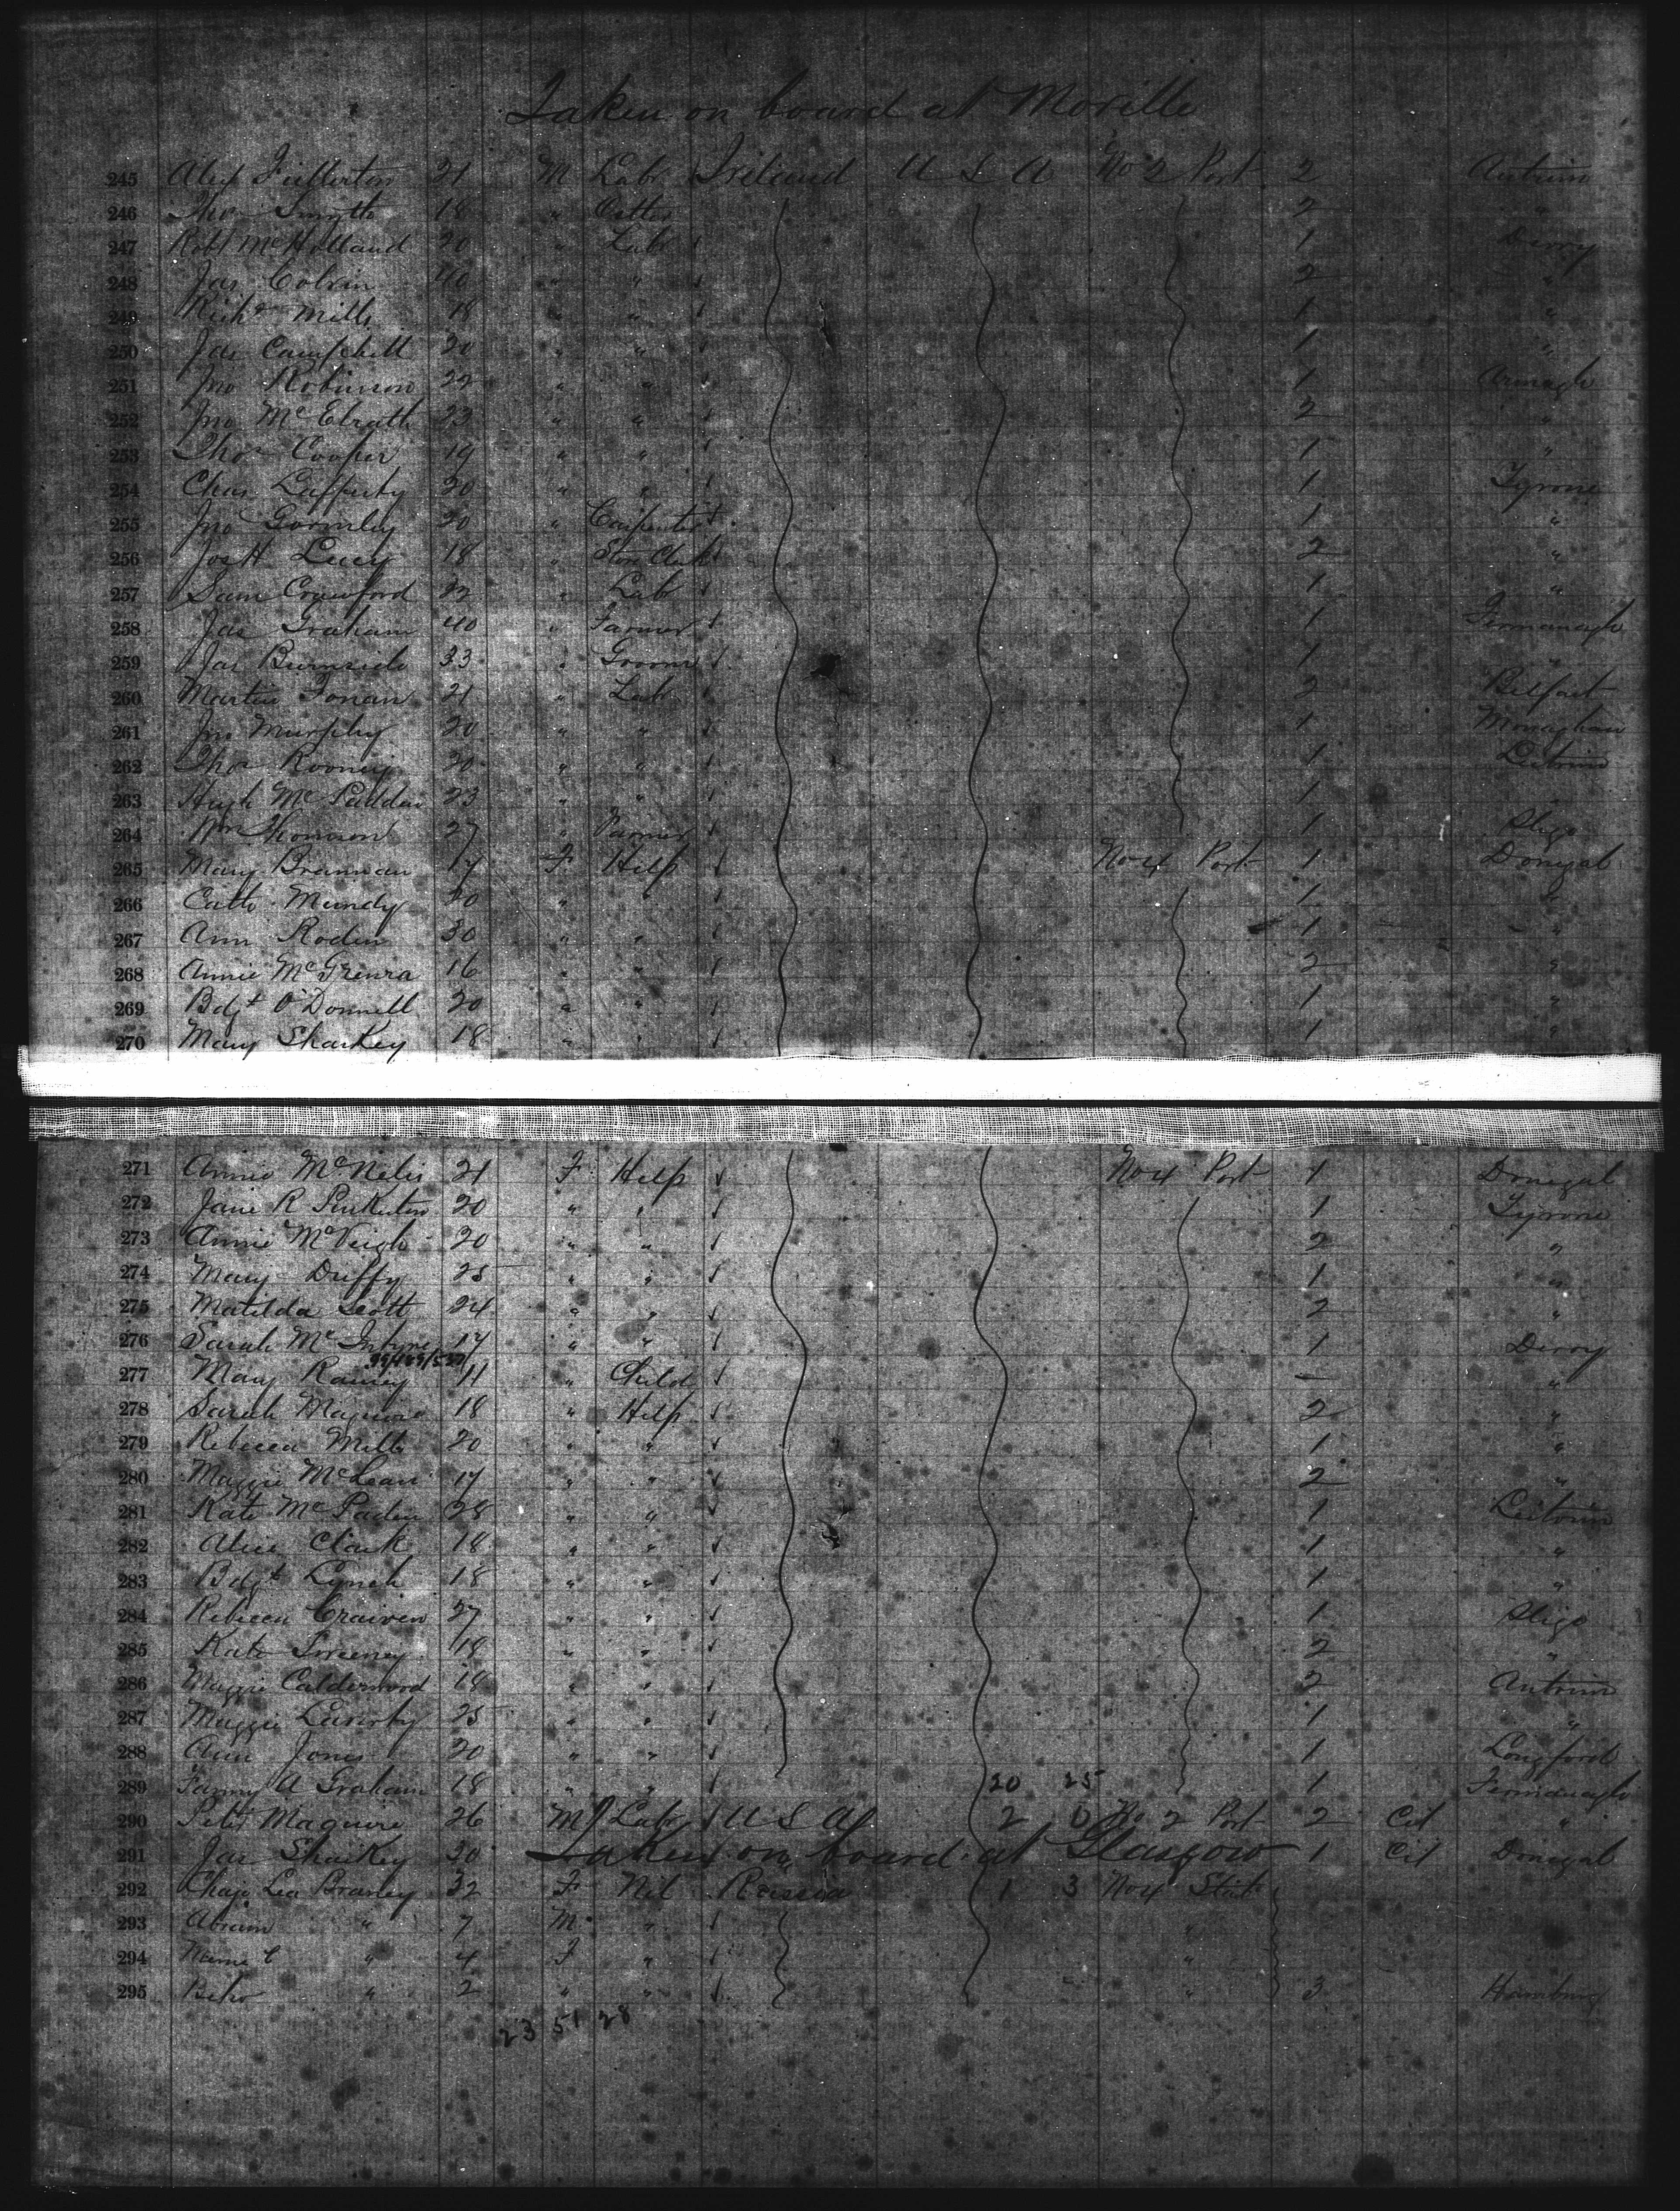 Taken on board at Moville
245 Alex Fullerton 21 M Labr Ireland U S A No 2 Port 2 Antrim
246 Thos Smyth 18 " 2 "
247 Robt McHolland 20 " Labr 1 Derry
248 Jas Colvin 40 " " 2 "
249 Richd Mills 18 " " 1 "
250 Jas Campbell 20 " " 1 "
251 Jno Robinson 22 " " 1 Armagh
252 Jno McElrath 23 " " 2 "
253 Thos Cooper 19 " " 1 "
254 Chas Lafferty 20 " " 1 Tyrone
255 Jno Gormley 20 " Carpenter 1 "
256 Jos H Lucy 18 " Store Clerk 2 "
257 Sam Crawford 22 " Labr 1 "
258 Jas Graham 40 " Farmer 1 Fermanagh
259 Jas Burnside 33 " Groom 1 "
260 Martin 21 " Labr 2 Belfast
261 Jno Murphy 20 " " 1 Monaghan
262 Thos Rooney 20 " " 1 Leitrim
263 Hugh McPadden 23 " " 1
264 Wm Thomson 27 " Farmer 1 Sligo
265 Mary Brannan 17 F Help No 4 Port 1 Donegal
266 Cath Mundy 20 " " 1 "
267 Ann Roden 30 " " 1 "
268 Annie McGrenra 16 " " 2 "
269 Bdgt O'Donnell 20 " " 1 "
270 Mary Sharkey 18 " " 1 "
271 Annie McNelis 21 F Help No 4 Port 1 Donegal
272 Jane R Pinkerton 20 " " 1 Tyrone
273 Annie McVeigh 20 " " 2 "
274 Mary Duffy 25 " " 1 "
275 Matilda Scott 24 " " 2 "
276 Sarah McIntyre 17 " " 1 Derry
277 Mary Rainey 11 " Child — "
278 Sarah Maguire 18 " Help 2 "
279 Rebecca Mills 20 " " 1 "
280 Maggie McLean 17 " " 2 "
281 Kate McPaden 28 " " 1 Leitrim
282 Alice Clark 18 " " 1 "
283 Bdgt Lynch 18 " " 1 "
284 Rebecca Craiven 27 " " 1 Sligo
285 Kate Sweeney 18 " " 2 "
286 Maggie Calderwood 18 " " 2 Antrim
287 Maggie Laverty 25 " " 1 "
288 Ann Jones 20 " " 1 Longford
289 Fanny A Graham 18 " " 20 25 1 Fermanagh
290 Petr Maguire 26 M Labr U S A 2 0 No 2 Port 2 Cit "
291 Jas Sharkey 30 " 1 Cit Donegal
Taken on board at Glasgow
292 Chaje Lea 32 F Nil Russia 1 3 No 4 Stb
293 Abram " 7 M " "
294 " 4 F " "
295 " 2 " " " 3 Hamburg
23 51 28